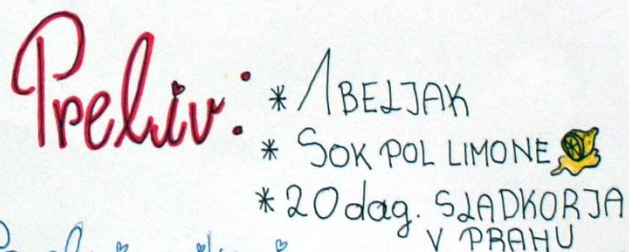 Preliv:
* 1 BELJAK
* SOK POL LIMONE
* 20 dag. SLADKORJA
V PRAHU